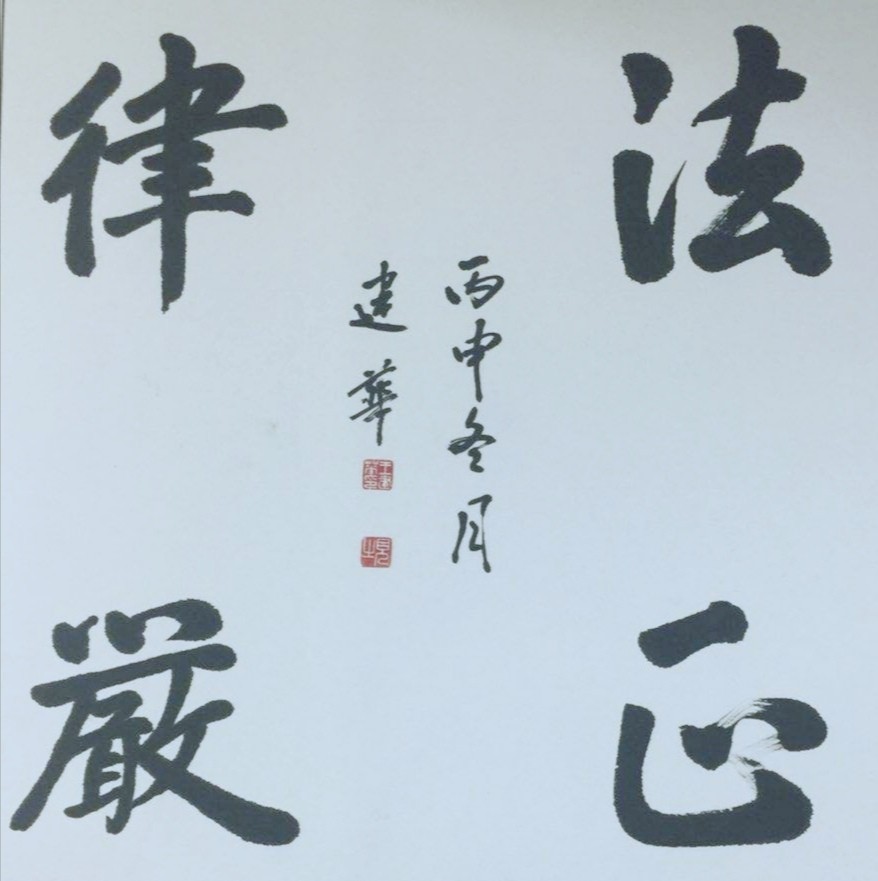 法正
律嚴
丙申冬月
建華